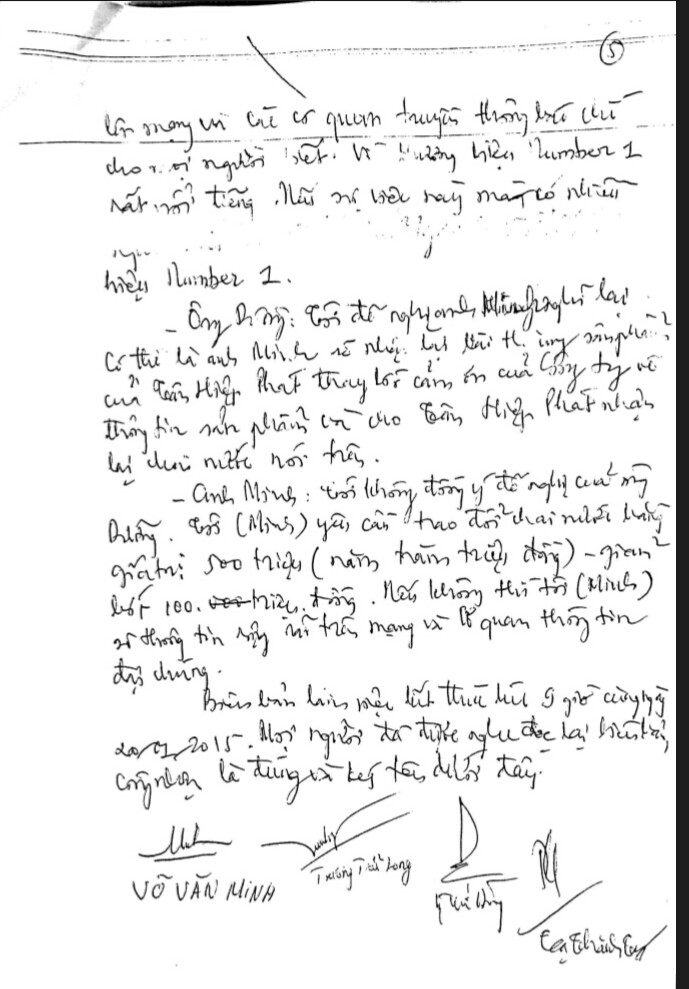 5
lên mạng và các cơ quan truyền thông báo chí
cho mọi người biết. Vì thương hiệu Number 1
rất nổi tiếng. Nếu sự việc này mà có nhiều
hiệu Number 1.
- Ông Dũng: Tôi đề nghị anh Minh nghĩ lại.
Có thể là anh Minh sẽ nhận lại sản phẩm
của Tân Hiệp Phát thay lời cảm ơn của Công ty về
thông tin sản phẩm và cho Tân Hiệp Phát nhận
lại chai nước nói trên.
- Anh Minh: Tôi không đồng ý đề nghị của ông
Dũng. Tôi (Minh) yêu cầu trao đổi chai nước bằng
giá trị 500 triệu (năm trăm triệu đồng) - giảm
bớt 100. triệu. đồng. Nếu không thì tôi (Minh)
sẽ thông tin trên mạng và cơ quan thông tin
đại chúng.
Biên bản làm việc kết thúc lúc 9 giờ cùng ngày
2015. Mọi người đã được nghe đọc lại biên bản,
công nhận là đúng và ký tên dưới đây.
VÕ VĂN MINH
Long